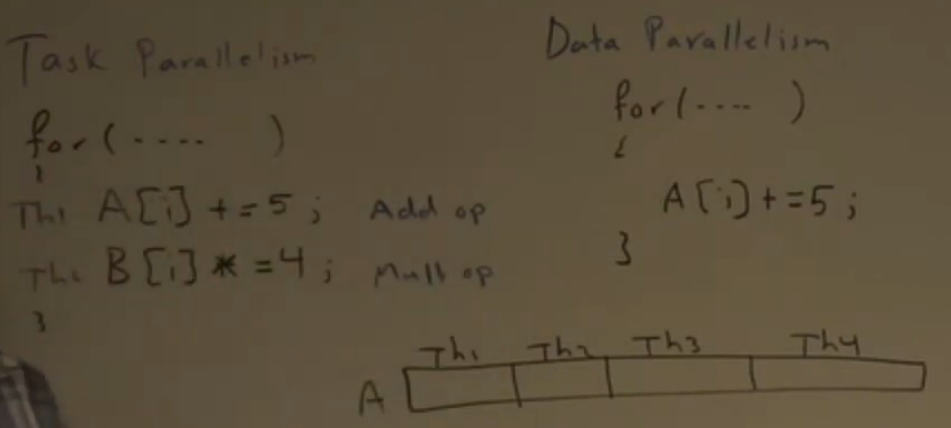 Task Parallelism
for (.... )
{
Th1 A[i] += 5 ; Add op
B[i] * = 4 ; Mult op
}
Data Parallelism
for (.... )
{
A[i] += 5 ;
}
Th1 Th2 Th3 Th4
A